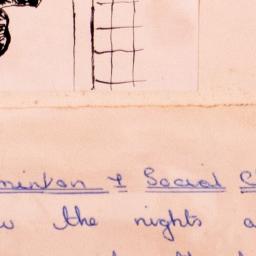 minton & Social C
w the nights a